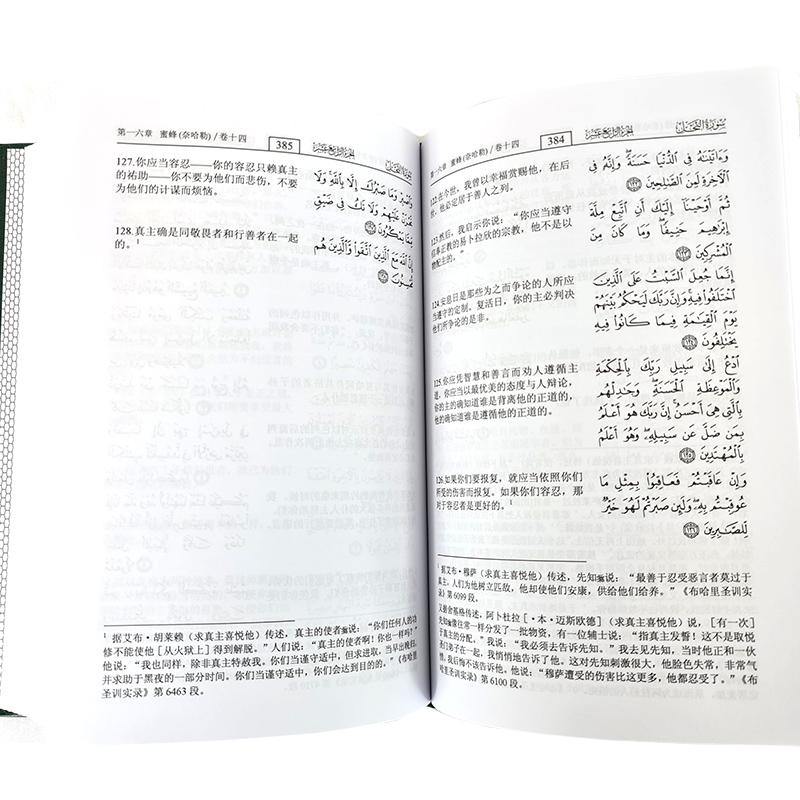 第一六章 蜜蜂(奈哈勒) / 卷十四
384
الجزء الرابع عشر
سورة النحل
122.在今世，我曾以幸福赏赐他，在后
世，他必定居于善人之列。
123.然后，我启示你说：“你应当遵守
信奉正教的易卜拉欣的宗教，他不是以
物配主的。”
124.安息日是那些为之而争论的人所应
当遵守的定制。复活日，你的主必判决
他们所争论的是非。
125.你应凭智慧和善言而劝人遵循主
道，你应当以最优美的态度与人辩论，
你的主的确知道谁是背离他的正道的，
他的确知道谁是遵循他的正道的。
126.如果你们要报复，就应当依照你们
所受的伤害而报复。如果你们容忍，那
对于容忍者是更好的。¹
وَءَاتَيْنَٰهُ فِى ٱلدُّنْيَا حَسَنَةً وَإِنَّهُۥ فِى
ٱلْءَاخِرَةِ لَمِنَ ٱلصَّٰلِحِينَ ١٢٢
ثُمَّ أَوْحَيْنَآ إِلَيْكَ أَنِ ٱتَّبِعْ مِلَّةَ
إِبْرَٰهِيمَ حَنِيفًا وَمَا كَانَ مِنَ
ٱلْمُشْرِكِينَ ١٢٣
إِنَّمَا جُعِلَ ٱلسَّبْتُ عَلَى ٱلَّذِينَ
ٱخْتَلَفُوا۟ فِيهِ وَإِنَّ رَبَّكَ لَيَحْكُمُ بَيْنَهُمْ
يَوْمَ ٱلْقِيَٰمَةِ فِيمَا كَانُوا۟ فِيهِ
يَخْتَلِفُونَ ١٢٤
ٱدْعُ إِلَىٰ سَبِيلِ رَبِّكَ بِٱلْحِكْمَةِ
وَٱلْمَوْعِظَةِ ٱلْحَسَنَةِ وَجَٰدِلْهُم
بِٱلَّتِى هِىَ أَحْسَنُ إِنَّ رَبَّكَ هُوَ أَعْلَمُ
بِمَن ضَلَّ عَن سَبِيلِهِۦ وَهُوَ أَعْلَمُ
بِٱلْمُهْتَدِينَ ١٢٥
وَإِنْ عَاقَبْتُمْ فَعَاقِبُوا۟ بِمِثْلِ مَا
عُوقِبْتُم بِهِۦ وَلَئِن صَبَرْتُمْ لَهُوَ خَيْرٌ
لِّلصَّٰبِرِينَ ١٢٦
¹ 据艾布·穆萨（求真主喜悦他）传述，先知ﷺ说：“最善于忍受恶言者莫过于
真主。人们为他树立匹敌，他却使他们安康，供给他们给养。”《布哈里圣训实
录》第 6099 段。
又据舍基格传述，阿卜杜拉［·本·迈斯欧德］（求真主喜悦他）说，［有一次］
先知ﷺ像常常一样分发了一批物资，有一位辅士说：“指真主发誓！这不是取悦
于真主的分配。”我说：“我必须去告诉先知。”我去见先知，当时他正和一伙
弟子在一起，我悄悄地告诉了他。这对先知刺激很大，他脸色失常，非常气
愤，我后悔不该告诉他。他说：“穆萨遭受的伤害比这更多，他都忍受了。”《布
哈里圣训实录》第 6100 段。
第一六章 蜜蜂(奈哈勒) / 卷十四
385
الجزء الرابع عشر
سورة النحل
127.你应当容忍——你的容忍只赖真主
的祐助——你不要为他们而悲伤，不要
为他们的计谋而烦恼。
128.真主确是同敬畏者和行善者在一起
的。¹
وَٱصْبِرْ وَمَا صَبْرُكَ إِلَّا بِٱللَّهِ وَلَا
تَحْزَنْ عَلَيْهِمْ وَلَا تَكُ فِى ضَيْقٍ
مِّمَّا يَمْكُرُونَ ١٢٧
إِنَّ ٱللَّهَ مَعَ ٱلَّذِينَ ٱتَّقَوا۟ وَّٱلَّذِينَ هُم
مُّحْسِنُونَ ١٢٨
¹ 据艾布·胡莱赖（求真主喜悦他）传述，真主的使者ﷺ说：“你们任何人的功
修不能使他［从火狱上］得到解脱。”人们说：“真主的使者啊！你也一样吗？”
他说：“我也同样，除非真主特赦我。你们当谨守适中，但求进取，当从出晚归，
并求助于黑夜的一部分时间。你们当谨守适中，你们会达到目的的。”《布哈里
圣训实录》第 6463 段。